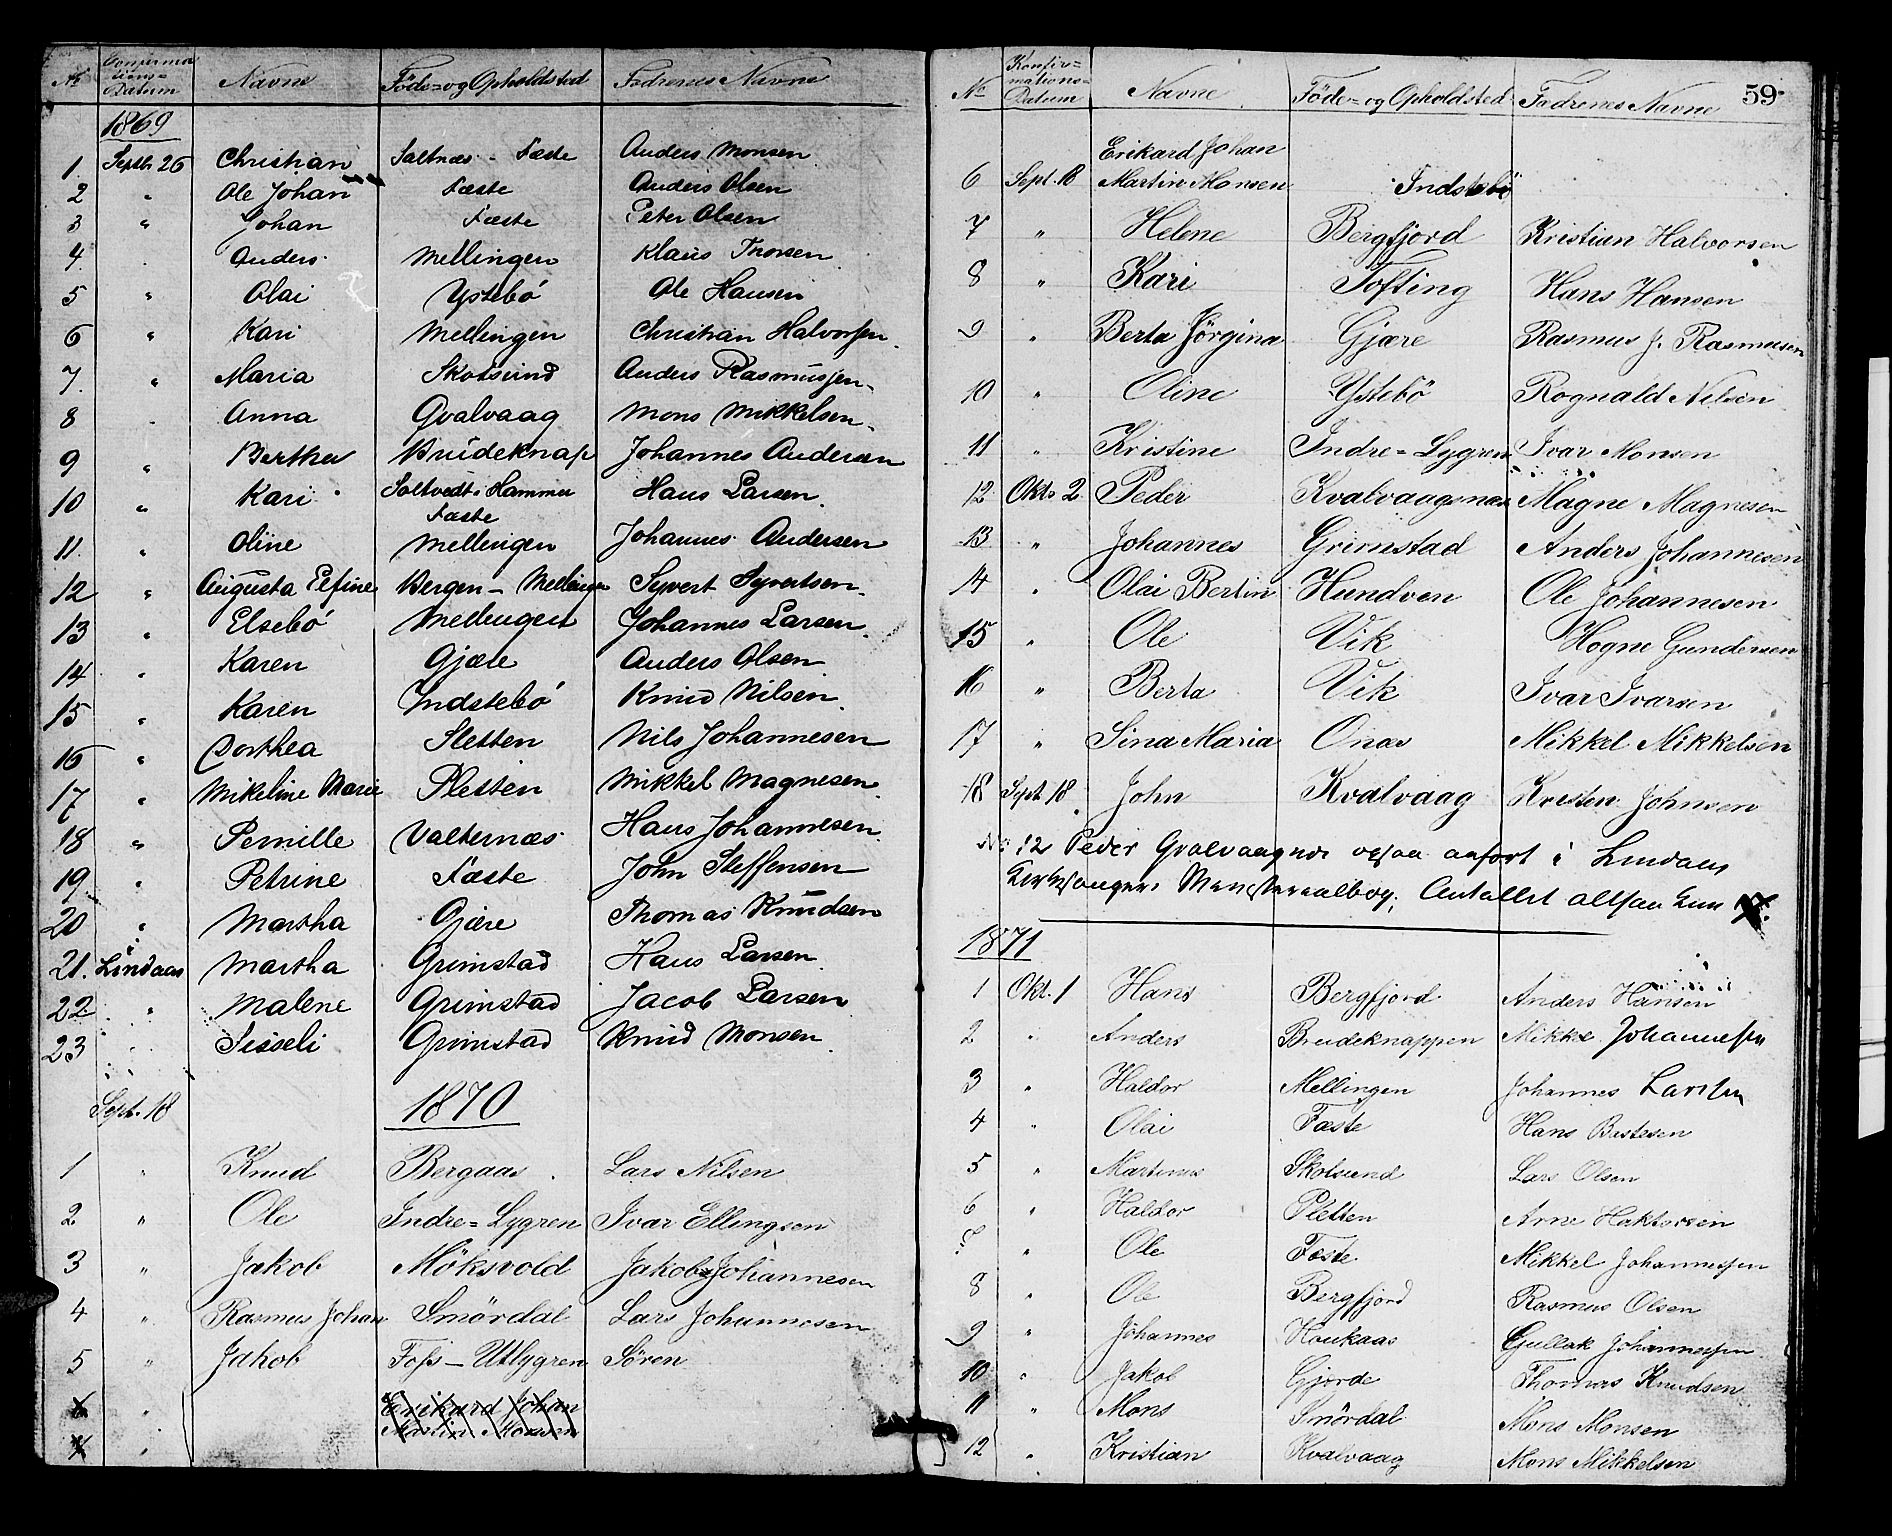 No Confirmations-Datum Navne Föde- og Opholdsted Fædrenes Navne
1869
1 Septbr 26 Christian Saltnæs - Fæste Anders Monsen
2 " Ole Johan Fæste Anders Olsen
3 " Johan Fæste Peter Olsen
4 Anders Mellingen Klaus Thorsen
5 " Olai Ystebö Ole Hansen
6 " Kari Mellingen Christian Halvorsen
7. " Maria Skotsund Anders Rasmussen
8 Anna Qvalvaag Mons Mikkelsen
9 " Bertha Brudeknap Johannes Andersen
10 " Kari Hammer Hans Larsen
Fæste
11. " Oline Mellingen Johannes Andersen
12 " Augusta Elfine Bergen - Mellingen Syvert Syvertsen
13 " Elsebö Mellingen Johannes Larsen
14 " Karen Gjære Anders Olsen
15 " Karen Indstebö Knud Nilsen
16 " Dorthea Sletten Nils Johannesen
17 " Mikeline Marie Pletten Mikkel Magnesen
18 " Pernille Valternæs Hans Johannesen
19 " Petrine Fæste John Steffensen
20 " Martha Gjære Thomas Knudsen
21. Lindaas Martha Grimstad Hans Larsen
22 " Malene Grimstad Jacob Larsen
23 Sisseli Grimstad Knud Monsen
Sept. 18 1870
1 " Knud Bergaas Lars Nilsen
2 " Ole Indre-Lygren Ivar Ellingsen
3 " Jakob Möksvold Jakob Johannesen
4 " Rasmus Johan Smördal Lars Johannesen
5 " Jakob Foss - Utlygren Sören
6 " Erikard Johan
" Martin Monsen
59
No Konfirmations-Datum Navne Föde- og Opholdsted Fædrenes Navne
Erikard Johan
6 Sept. 18 Martin Monsen Indstebö
7 " Helene Bergfjord Kristian Halvorsen
8 " Kari Tofting Hans Hansen
9 " Berta Jörgina Gjære Rasmus J. Rasmusen
10 " Oline Ystebö Rognald Nilsen
11 " Kristine Indre-Lygren Ivar Monsen
12 Okt. 2 Peder Kvalvaagsnæs Magne Magnesen
13 " Johannes Grimstad Anders Johannesen
14 " Olai Bertin Hundven Ole Johannesen
15 " Ole Vik Hogne Gundersen
16 " Berta Vik Ivar Ivarsen
17 " Sina Maria Onas Mikkel Mikkelsen
18 Sept 18 John Kvalvaag Kristen Johnsen
No 12 Peder Qvalvaagnæs ogsaa anfört i Lindaas
Ministerialbog, Antallet altsaa kun
1871
1 Okt. 1 Hans Bergfjord Anders Hansen
2 " Anders Brudeknappen Mikkel Johannessen
3 " Haldor Mellingen Johannes Larsen
4 " Olai Fæste Hans Bertesen
5 " Martinus Skotsund Lars Olsen
6 " Haldor Pletten Arne Haktorsen
7 " Ole Fæste Mikkel Johannessen
8 " Ole Bergfjord Rasmus Olsen
9 " Johannes Haukaas Gullak Johannessen
10 " Jakob Gjerde Thomas Knudsen
11 " Mons Smördal Mons Monsen
12 " Kristian Kvalvaag Mons Mikkelsen